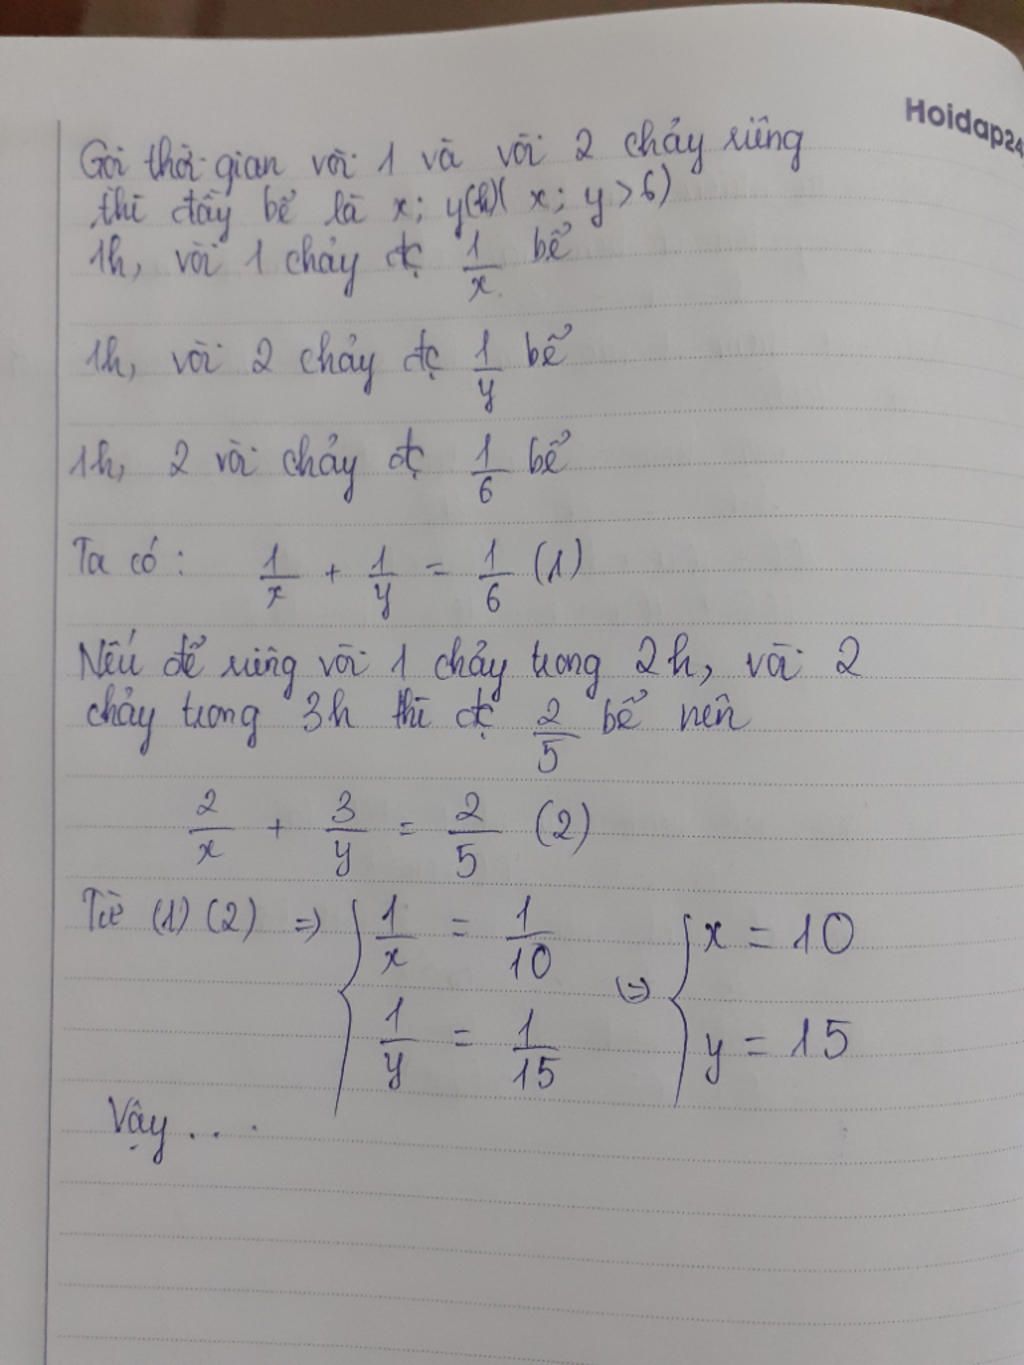 Hoidap24
Gọi thời gian vòi 1 và vòi 2 chảy riêng
thì đầy bể là x; y(h)( x; y > 6)
1h, vòi 1 chảy đc 1/x bể
1h, vòi 2 chảy đc 1/y bể
1h, 2 vòi chảy đc 1/6 bể
Ta có: 1/x + 1/y = 1/6 (1)
Nếu để riêng vòi 1 chảy trong 2h, vòi 2
chảy trong 3h thì đc 2/5 bể nên
2/x + 3/y = 2/5 (2)
Từ (1) (2) => { 1/x = 1/10 (=) { x = 10
1/y = 1/15 y = 15
Vậy . . .